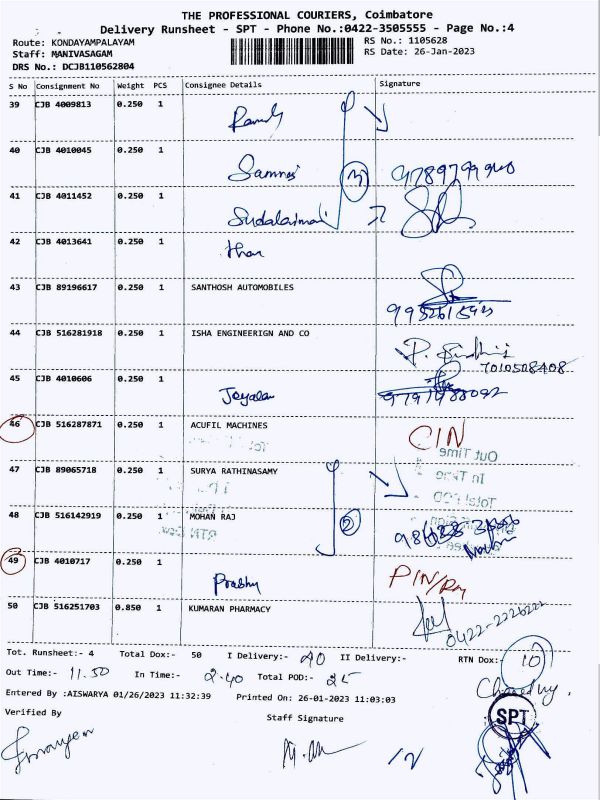 THE PROFESSIONAL COURIERS, Coimbatore
Delivery Runsheet - SPT - Phone No.:0422-3505555 - Page No.:4
Route: KONDAYAMPALAYAM RS No.: 1105628
Staff: MANIVASAGAM RS Date: 26-Jan-2023
DRS No.: DCJB110562804
S No Consignment No Weight PCS Consignee Details Signature
39 CJB 4009813 0.250 1
40 CJB 4010045 0.250 1
3
41 CJB 4011452 0.250 1 Sudalaimani
42 CJB 4013641 0.250 1
43 CJB 89196617 0.250 1 SANTHOSH AUTOMOBILES
44 CJB 516281918 0.250 1 ISHA ENGINEERIGN AND CO
7010508408
45 CJB 4010606 0.250 1 Jeyalan
46 CJB 516287871 0.250 1 ACUFIL MACHINES CIN
Out Time
In Time
Total POD
47 CJB 89065718 0.250 1 SURYA RATHINASAMY
48 CJB 516142919 0.250 1 MOHAN RAJ 2
49 CJB 4010717 0.250 1 Prabhu
50 CJB 516251703 0.850 1 KUMARAN PHARMACY
0422-2226222
Tot. Runsheet:- 4 Total Dox:- 50 I Delivery:- 40 II Delivery:- RTN Dox:- 10
Out Time:- 11.50 In Time:- 2.40 Total POD:- 25
Entered By :AISWARYA 01/26/2023 11:32:39 Printed On: 26-01-2023 11:03:03
Verified By Staff Signature
SPT